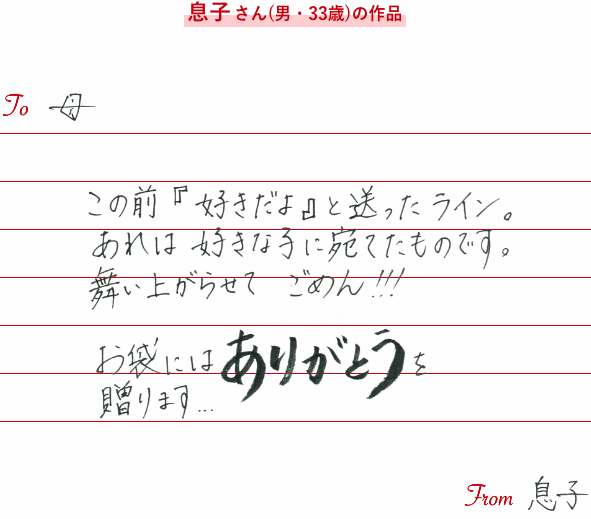 息子さん(男・33歳)の作品
To 母
この前『好きだよ』と送ったライン。
あれは好きな子に宛てたものです。
舞い上がらせて ごめん!!!
お袋にはありがとうを
贈ります…
From 息子